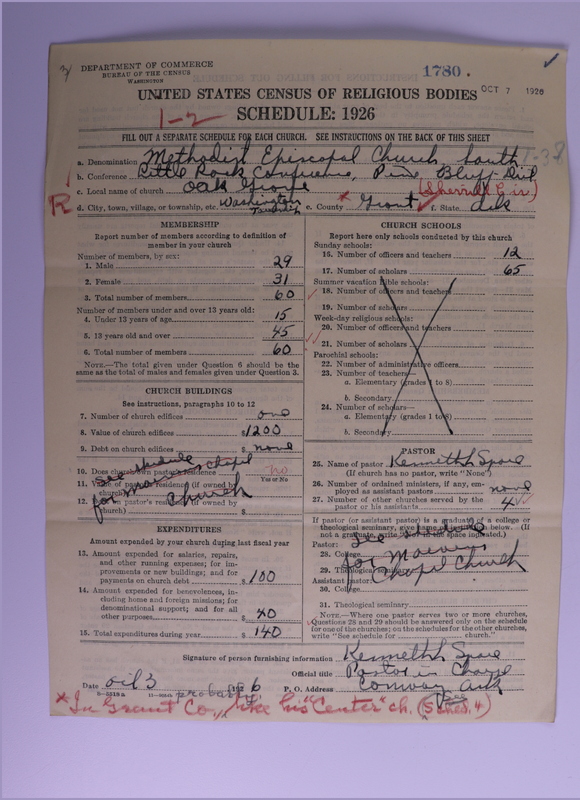 DEPARTMENT OF COMMERCE
BUREAU OF THE CENSUS
WASHINGTON
1780.
UNITED STATES CENSUS OF RELIGIOUS BODIES
OCT 7 1926
1-2
SCHEDULE: 1926
FILL OUT A SEPARATE SCHEDULE FOR EACH CHURCH. SEE INSTRUCTIONS ON THE BACK OF THIS SHEET
a. Denomination Methodist Episcopal Church, South
T-38
b. Conference Little Rock Conference, Pine Bluff Dist
c. Local name of church Oak Grove (Sherrill Cir.)
R
d. City, town, village, or township, etc. Washington Township e. County * Grant f. State Ark
MEMBERSHIP
Report number of members according to definition of
member in your church
Number of members, by sex:
1. Male 29
2. Female 31
3. Total number of members 60
Number of members under and over 13 years old:
4. Under 13 years of age 15
5. 13 years old and over 45
6. Total number of members 60
NOTE.—The total given under Question 6 should be the
same as the total of males and females given under Question 3.
CHURCH BUILDINGS
See instructions, paragraphs 10 to 12
7. Number of church edifices one
8. Value of church edifices $1200
9. Debt on church edifices none
10. Does church own pastor's residence? no
Yes or No
11. Value of pastor's residence (if owned by
church) $
12. Debt on pastor's residence (if owned by
church) $
See schedule
for chapel
church
EXPENDITURES
Amount expended by your church during last fiscal year
13. Amount expended for salaries, repairs,
and other running expenses; for im-
provements or new buildings; and for
payments on church debt $100
14. Amount expended for benevolences, in-
cluding home and foreign missions; for
denominational support; and for all
other purposes $40
15. Total expenditures during year $140
CHURCH SCHOOLS
Report here only schools conducted by this church
Sunday schools:
16. Number of officers and teachers 12
17. Number of scholars 65
Summer vacation Bible schools:
18. Number of officers and teachers
19. Number of scholars
Week-day religious schools:
20. Number of officers and teachers
21. Number of scholars
Parochial schools:
22. Number of administrative officers
23. Number of teachers—
a. Elementary (grades 1 to 8)
b. Secondary
24. Number of scholars—
a. Elementary (grades 1 to 8)
b. Secondary
PASTOR
25. Name of pastor Kenneth Spore
(If church has no pastor, write "None")
26. Number of ordained ministers, if any, em-
ployed as assistant pastors none
27. Number of other churches served by the
pastor or his assistants 4
If pastor (or assistant pastor) is a graduate of a college or
theological seminary, give name of institution below. (If
not a graduate, write "Not" in the space indicated.)
Pastor:
28. College
29. Theological seminary
Assistant pastor:
30. College
See schedule
for
Chapel Church
31. Theological seminary
NOTE.—Where one pastor serves two or more churches,
Questions 28 and 29 should be answered only on the schedule
for one of the churches; on the schedules for the other churches,
write "See schedule for church."
Signature of person furnishing information Kenneth Spore
Official title Pastor in Charge
Date 3 1926 P. O. Address Conway Ark
8-5219a
probably
* In Grant Co., like his "Center" ch. (See Sched. 4)